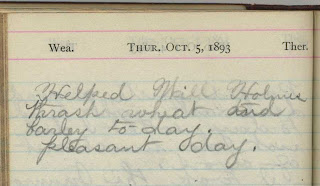 Wea. THUR. OCT. 5, 1893 Ther.
Helped Will Holmes
thrash wheat and
barley to-day.
pleasant day.